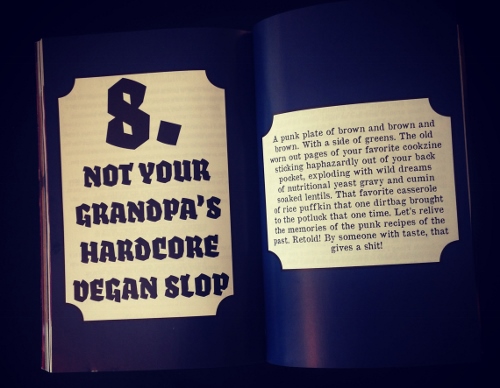 8.
NOT YOUR
GRANDPA'S
HARDCORE
VEGAN SLOP
A punk plate of brown and brown and
brown. With a side of greens. The old
worn out pages of your favorite cookzine
sticking haphazardly out of your back
pocket, exploding with wild dreams
of nutritional yeast gravy and cumin
soaked lentils. That favorite casserole
of rice puffkin that one dirtbag brought
to the potluck that one time. Let's relive
the memories of the punk recipes of the
past. Retold! By someone with taste, that
gives a shit!